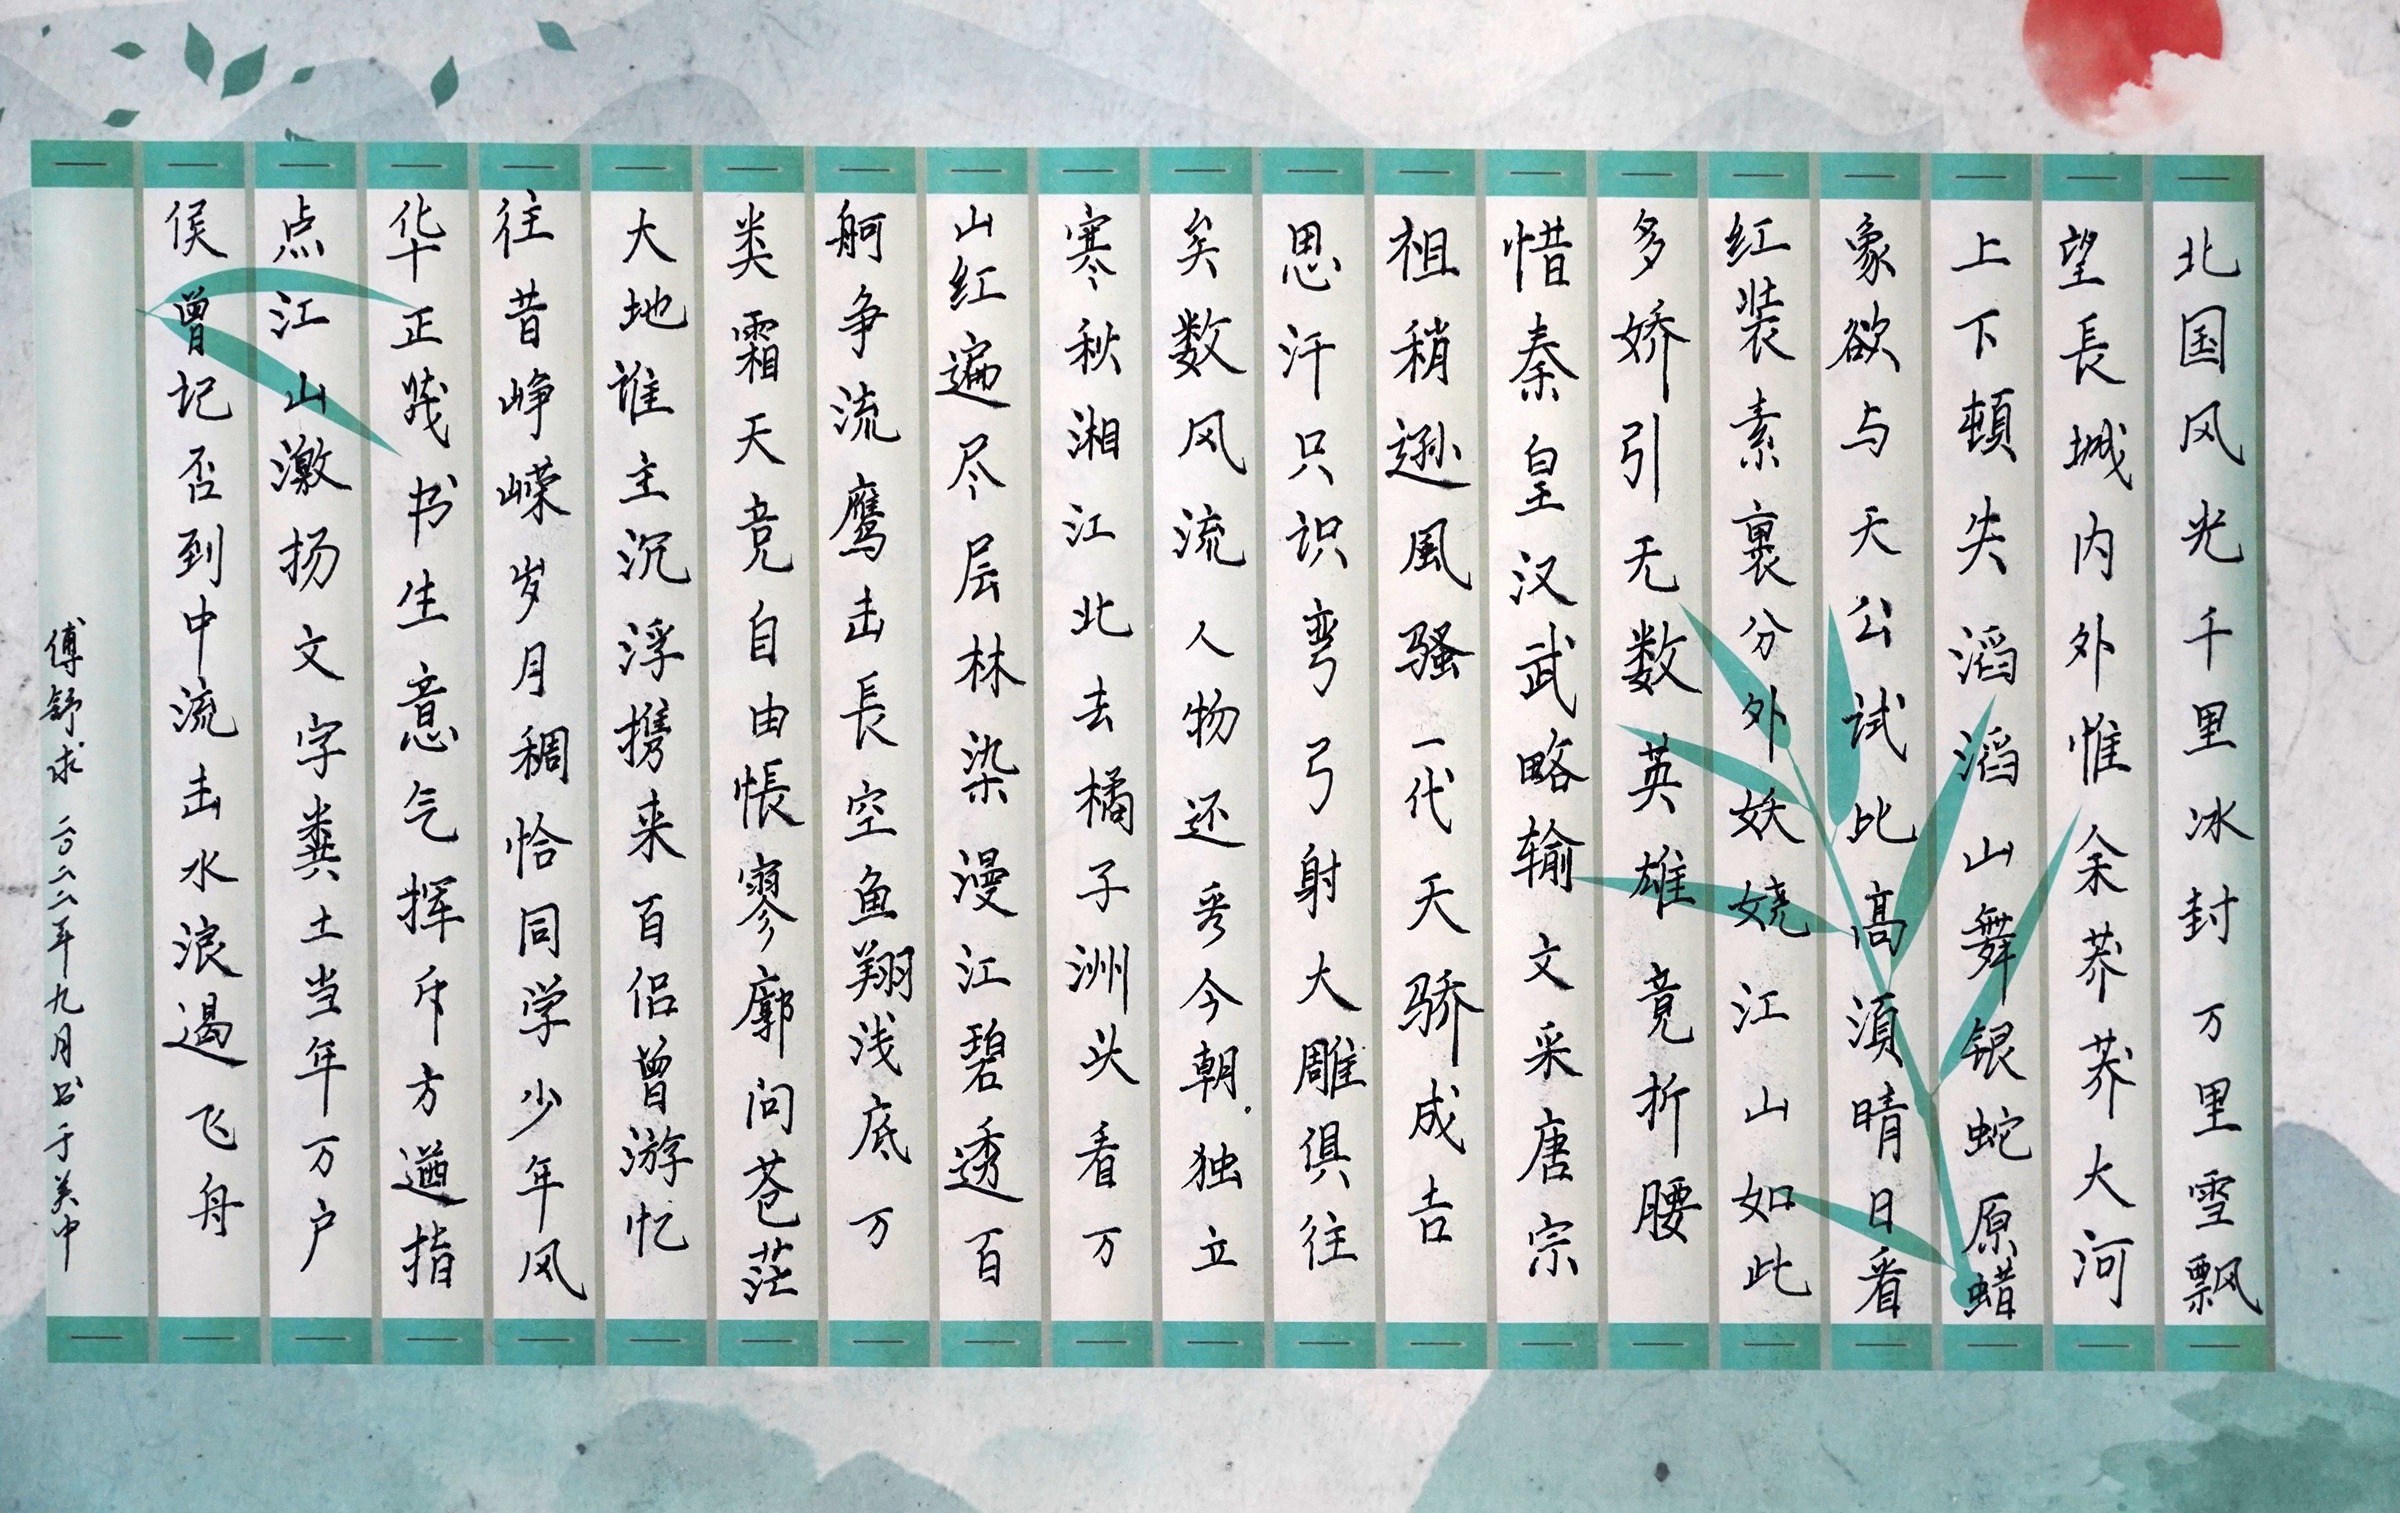 北国风光千里冰封万里雪飘
望長城内外惟余莽莽大河
上下頓失滔滔山舞银蛇原蜡
象欲与天公试比高須晴日看
红装素裹分外妖娆江山如此
多娇引无数英雄竟折腰
惜秦皇汉武略输文采唐宗
祖稍逊風骚一代天骄成吉
思汗只识弯弓射大雕俱往
矣数风流人物还看今朝.独立
寒秋湘江北去橘子洲头看万
山红遍尽层林染漫江碧透百
舸争流鹰击長空鱼翔浅底万
类霜天竞自由帳寥廓问苍茫
大地谁主沉浮携来百侣曾游忆
往昔峥嵘岁月稠恰同学少年风
华正茂书生意气挥斥方遒指
点江山激扬文字粪土当年万户
侯曾记否到中流击水浪遏飞舟
傅舒求 二〇二二年九月书于关中